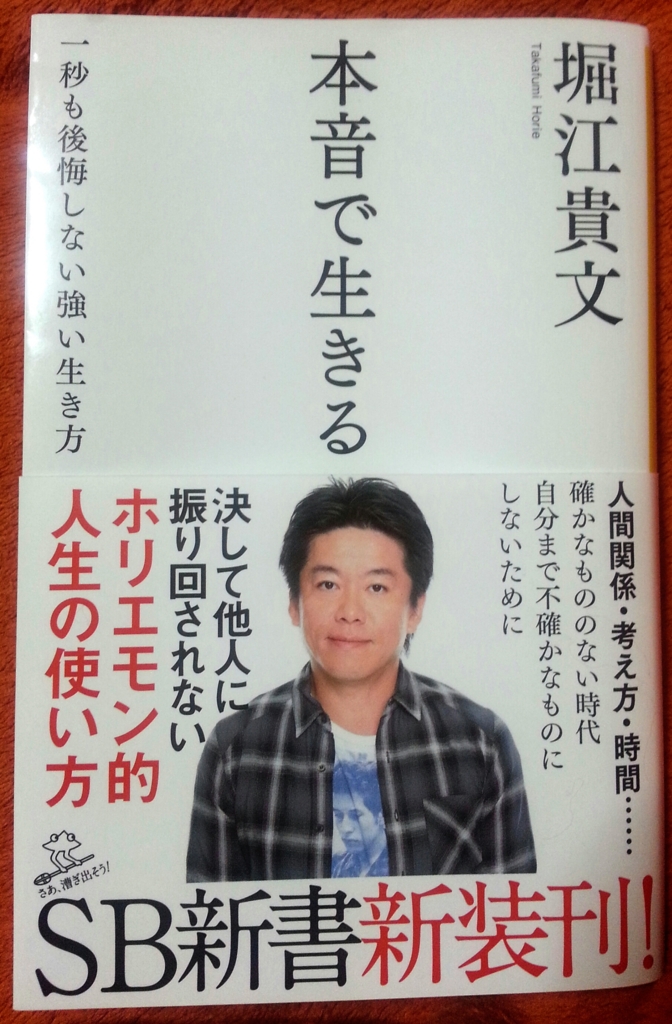 堀江貴文
Takafumi Horie
本音で生きる
一秒も後悔しない強い生き方
人間関係・考え方・時間……
確かなもののない時代
自分まで不確かなものに
しないために
決して他人に
振り回されない
ホリエモン的
人生の使い方
さあ、漕ぎ出そう!
SB新書新装刊!